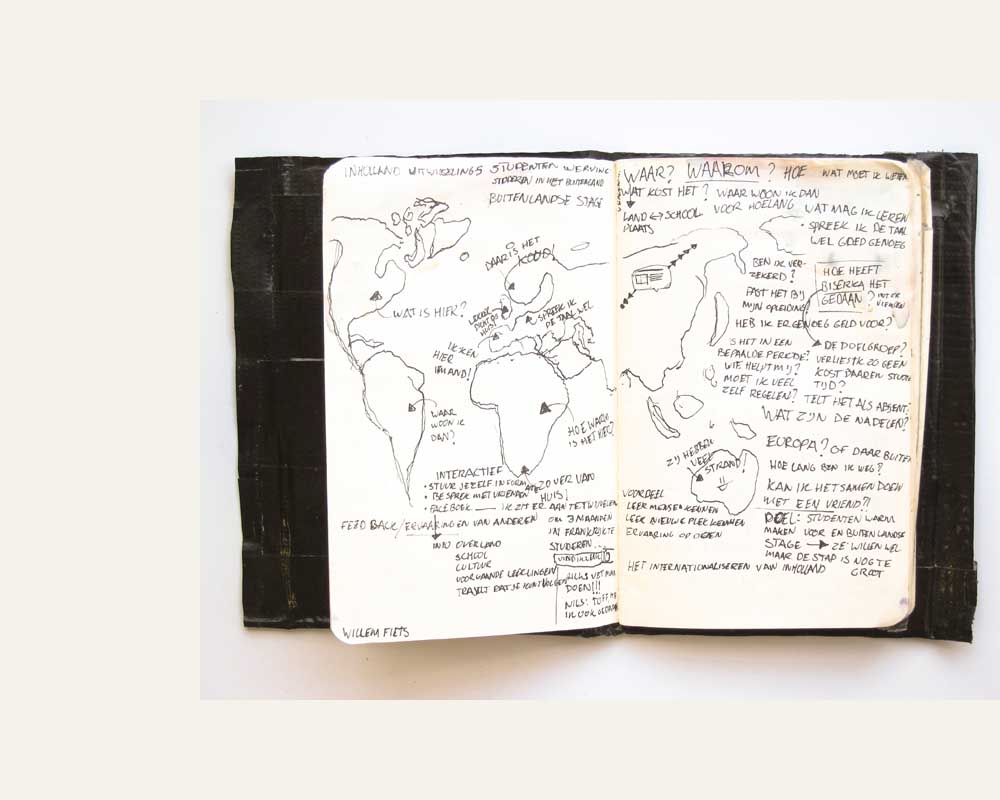 INHOLLAND UITWISSELINGS STUDENTEN WERVING
STUDEREN IN HET BUITENLAND
BUITENLANDSE STAGE
DAAR IS HET
KOUD!
WAT IS HIER?
LEKKER
DICHT BIJ
HUIS!
SPREEK IK
DE TAAL WEL
IK KEN
HIER
IEMAND!
WAAR
WOON IK
DAN?
HOE WARM
IS HET HIER?
INTERACTIEF
• STUUR JEZELF IN FORM
• BESPREK MET VRIENDEN
• FACEBOEK — IK ZIT ER AAN TE TWIJFELEN
OM 3 MAANDEN
IN FRANKRIJK TE
STUDEREN...
VIND IK LEUK
ZO VER VAN
HUIS!
FEED BACK/ERVARINGEN VAN ANDEREN
INFO OVER LAND
SCHOOL
CULTUUR
VOORGAANDE LEERLINGEN
TRAJECT DAT JE KUNT VOLGEN
DOEN!!!
NILS: TOFF, 
IK OOK
WILLEM FIETS
WAAR? WAAROM? HOE WAT MOET IK WETEN
WAT KOST HET? WAAR WOON IK DAN
VOOR HOELANG
LAND ↔ SCHOOL
PLAATS
WAT MAG IK LEREN
• SPREEK IK DE TAAL
WEL GOED GENOEG
BEN IK VER-
ZEKERD?
HOE HEEFT
BISERKA HET
GEDAAN?
INTER
VIEWEN
PAST HET BIJ
MIJN OPLEIDING
HEB IK ER GENOEG GELD VOOR?
IS HET IN EEN
BEPAALDE PERIODE?
WIE HELPT MIJ?
MOET IK VEEL
ZELF REGELEN?
DE DOELGROEP?
VERLIES IK ZO GEEN
KOST DAAR EN STUDIE
TIJD?
TELT HET ALS ABSENT
WAT ZIJN DE NADELEN?
ZIJ HEBBEN
VEEL
STRAND!
EUROPA? OF DAAR BUITEN
HOE LANG BEN IK WEG?
KAN IK HET SAMEN DOEN
MET EEN VRIEND?!
VOORDEEL
LEER MENSEN KENNEN
LEER NIEUWE PLEK KENNEN
ERVARING OP DOEN
DOEL: STUDENTEN WARM
MAKEN VOOR EN BUITENLANDSE
STAGE → ZE WILLEN WEL
MAAR DE STAP IS NOG TE
GROOT
HET INTERNATIONALISEREN VAN INHOLLAND